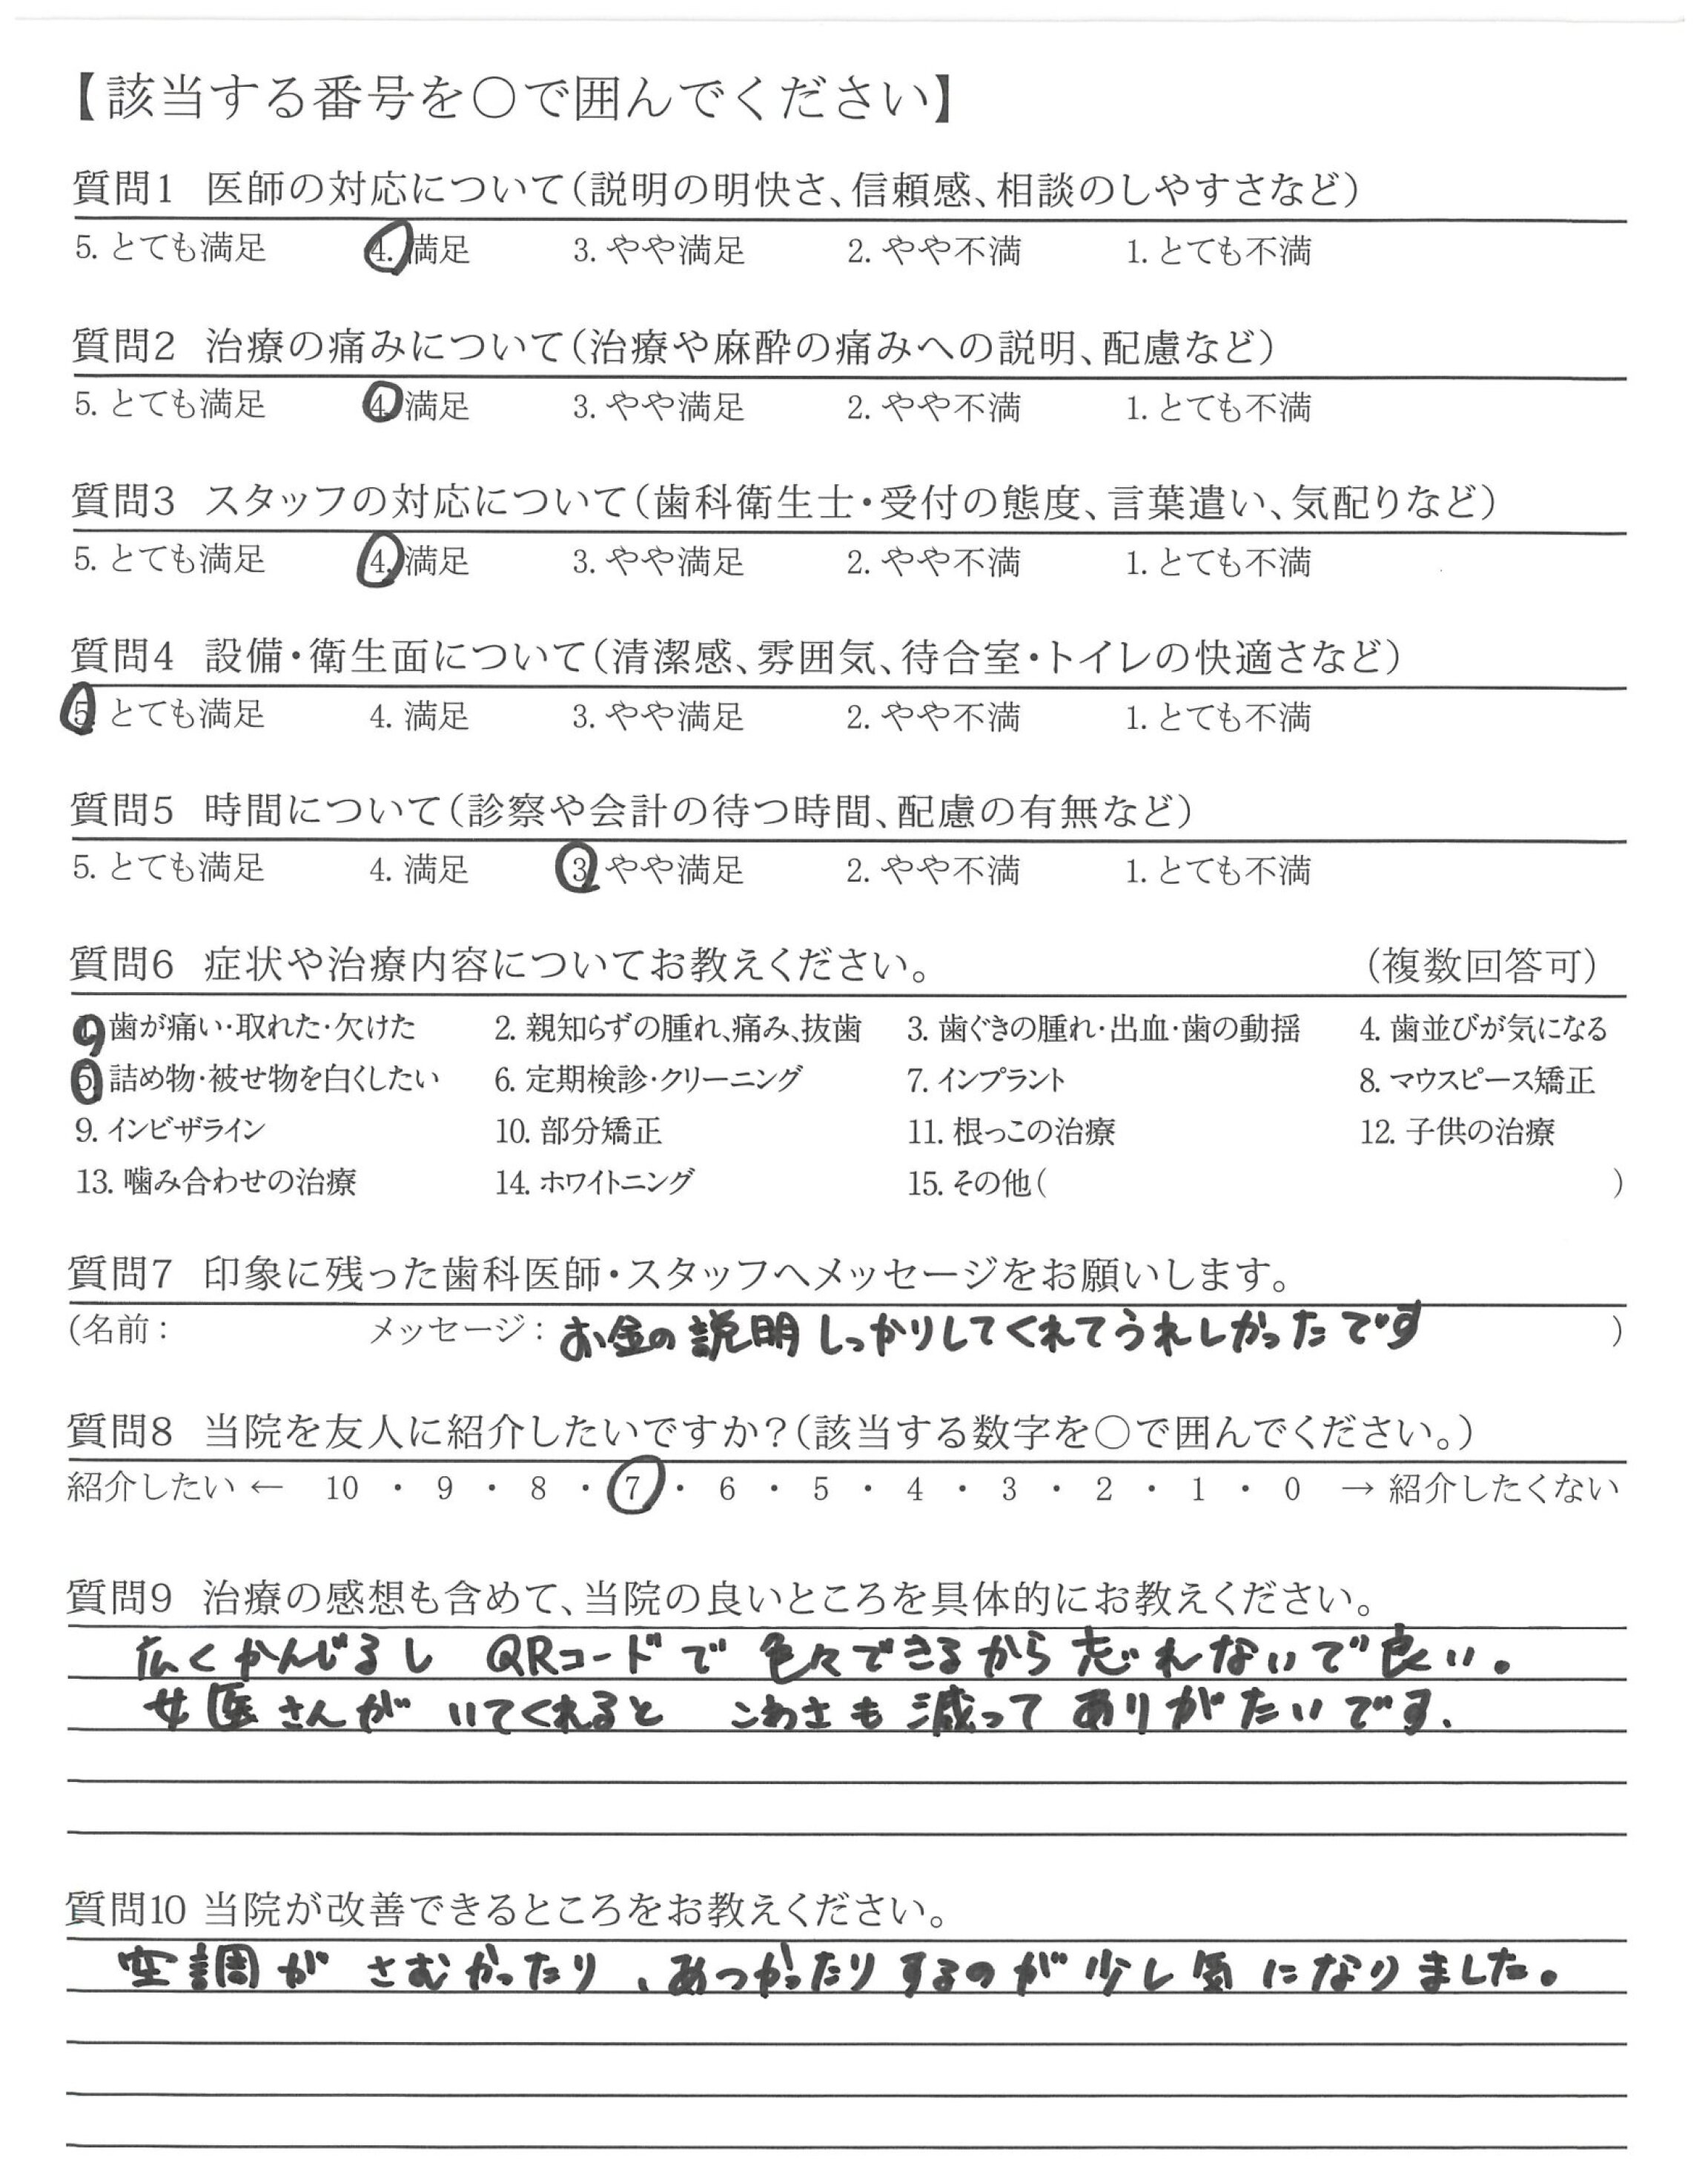 【該当する番号を○で囲んでください】
質問1 医師の対応について(説明の明快さ、信頼感、相談のしやすさなど)
5. とても満足 4. 満足 3. やや満足 2. やや不満 1. とても不満
質問2 治療の痛みについて(治療や麻酔の痛みへの説明、配慮など)
5. とても満足 4. 満足 3. やや満足 2. やや不満 1. とても不満
質問3 スタッフの対応について(歯科衛生士・受付の態度、言葉遣い、気配りなど)
5. とても満足 4. 満足 3. やや満足 2. やや不満 1. とても不満
質問4 設備・衛生面について(清潔感、雰囲気、待合室・トイレの快適さなど)
5. とても満足 4. 満足 3. やや満足 2. やや不満 1. とても不満
質問5 時間について(診察や会計の待つ時間、配慮の有無など)
5. とても満足 4. 満足 3. やや満足 2. やや不満 1. とても不満
質問6 症状や治療内容についてお教えください。 (複数回答可)
1. 歯が痛い・取れた・欠けた 2. 親知らずの腫れ、痛み、抜歯 3. 歯ぐきの腫れ・出血・歯の動揺 4. 歯並びが気になる
5. 詰め物・被せ物を白くしたい 6. 定期検診・クリーニング 7. インプラント 8. マウスピース矯正
9. インビザライン 10. 部分矯正 11. 根っこの治療 12. 子供の治療
13. 噛み合わせの治療 14. ホワイトニング 15. その他( )
質問7 印象に残った歯科医師・スタッフへメッセージをお願いします。
(名前: メッセージ: お金の説明しっかりしてくれてうれしかったです )
質問8 当院を友人に紹介したいですか?(該当する数字を○で囲んでください。)
紹介したい ← 10 ・ 9 ・ 8 ・ 7 ・ 6 ・ 5 ・ 4 ・ 3 ・ 2 ・ 1 ・ 0 → 紹介したくない
質問9 治療の感想も含めて、当院の良いところを具体的にお教えください。
広くかんじるし QRコードで 色々できるから 忘れないで良い。
女医さんが いてくれると こわさも 減って ありがたいです.
質問10 当院が改善できるところをお教えください。
空調が さむかったり、あつかったりするのが 少し気になりました。